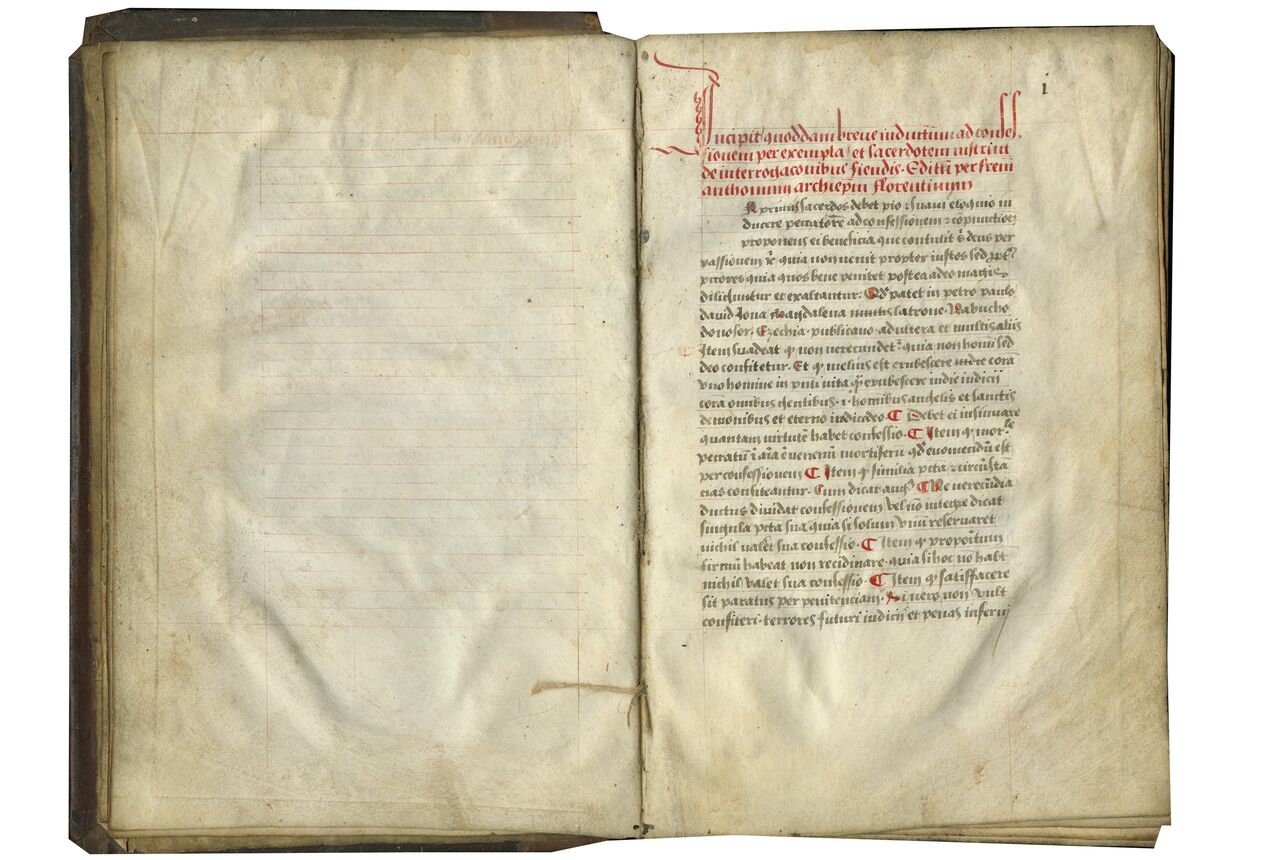 i
Incipit quoddam breve inductivum ad confes
sionem per exempla / et sacerdotem instruit
de interrogac̄onibus fiendis. Editū per frem̄
anthoniniū archiep̄m florentinum
In primis sacerdos debet pio et suavi eloquio in
ducere peccatorē ad confessionem et cōpunctioeȝ
proponens ei beneficia que contulit deus per
passionem quia non venit propter iustos sed ꝓpt̄
pc̄cores quia quos bene penitet postea a deo magis
diliguntur et exaltantur. Qd̄ patet in petro paulo
david Iona Magdalena latrone. Nabucho
donosor. Ezechia. publicano. adultera et multis aliis
Item suadeat ꝙ non verecundet᷑ quia non hom̄i sed
deo confitetur. Et ꝙ melius est erubescere corā
uno homine in vita ꝙ̄ erubescere in die iudicii
corā omnibus gentibus. i. homībus angelis et sanctis
demonibus et eterno iudici deo. ¶ Debet ei insinuare
quantam virtutē habet confessio. ¶ Item ꝙ mor.le
peccatū ī aīa ē venenū mortiferū qd̄ evomendū est
per confessionem ¶ Item ꝙ similia pctā et circūstā
cias confiteantur. Cum dicat augꝰ ¶ Ne verecūdia
ductus dividat confessionem vel nō integre dicat
singula pctā sua quia si solum unū reservaret
nichil valet sua confessio. ¶ Item ꝙ propoītum
firmū habeat non recidivare. quia si hoc nō habet
nichil valet sua confessio. ¶ Item ꝙ satisfacere
sit paratus per penitenciam. Si vero non vult
confiteri. terrores futuri iudicij et penas inferni